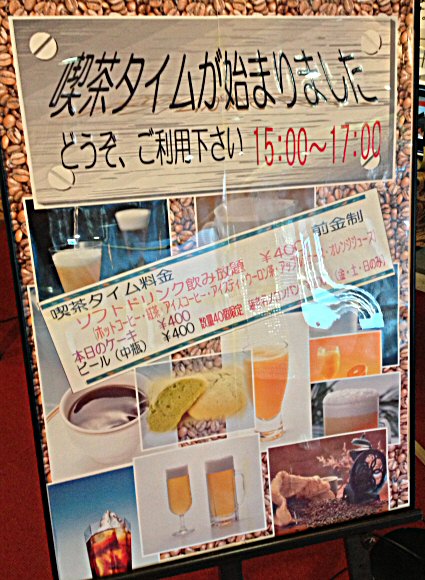 喫茶タイムが始まりました
どうぞ、ご利用下さい 15:00～17:00
喫茶タイム料金 前金制
ソフトドリンク飲み放題 ¥400
(ホットコーヒー・紅茶・アイスコーヒー・アイスティ・ウーロン茶・アップルジュース・オレンジジュース)
本日のケーキ ¥400 数量40個限定 メロンパン (金・土・日のみ)
ビール(中瓶) ¥400